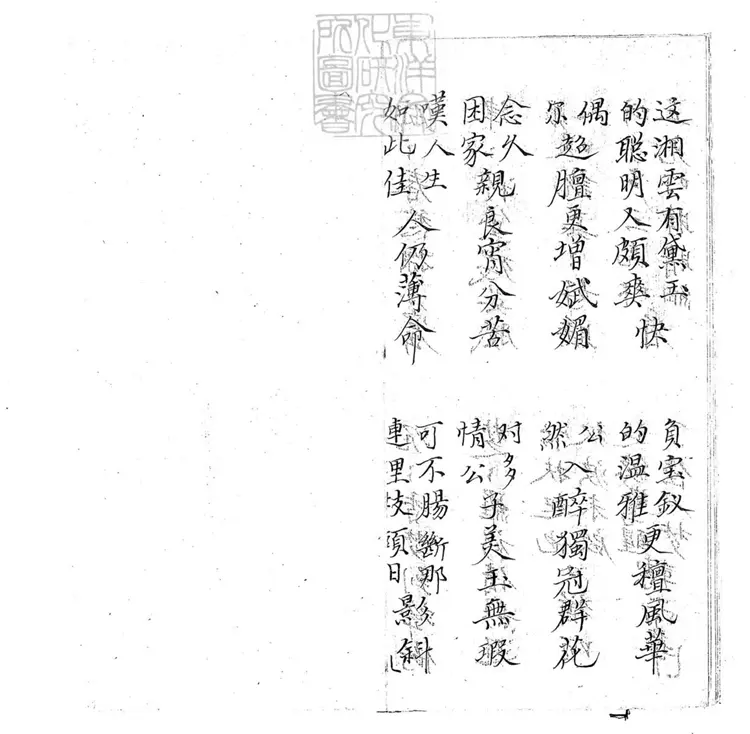 东洋文化研究所圖書
这湘雲有黛玉的聪明又頗爽快
負宝釵的温雅更擅風華
偶尔超膻更增斌媚
公然入醉獨冠群花
念久困家親良宵分苦
对多情公子美玉無瑕
嘆人生如此佳人仍薄命
可不腸斷那連里枝頭日影斜